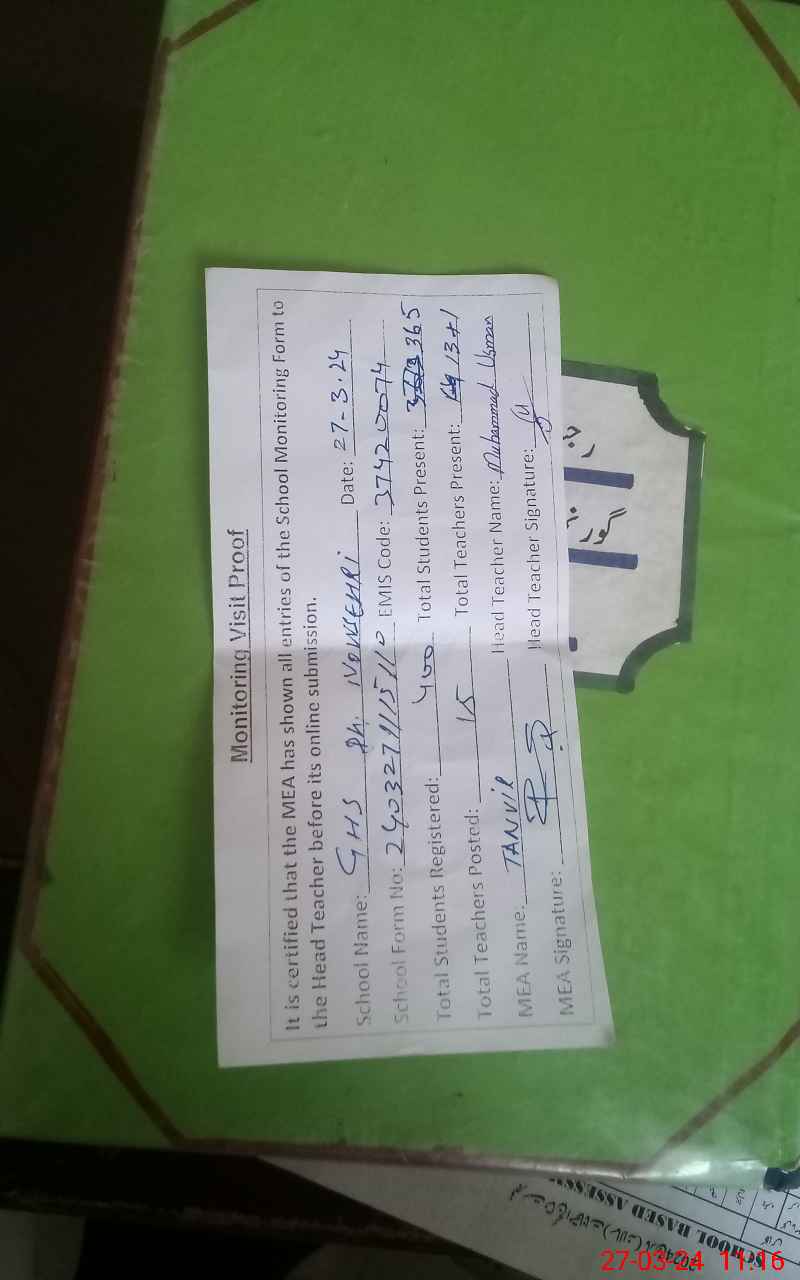 Monitoring Visit Proof
It is certified that the MEA has shown all entries of the School Monitoring Form to
the Head Teacher before its online submission.
School Name: GHS Ph. NOWSEHRI Date: 27-3.24
School Form No: EMIS Code: 37420074
Total Students Registered: 400 Total Students Present: 365
Total Teachers Posted: 15 Total Teachers Present: 13+1
MEA Name: TANVIR Head Teacher Name: Muhammad Usman
MEA Signature: Head Teacher Signature:
SCHOOL BASED ASSESS
27-03-24 11:16